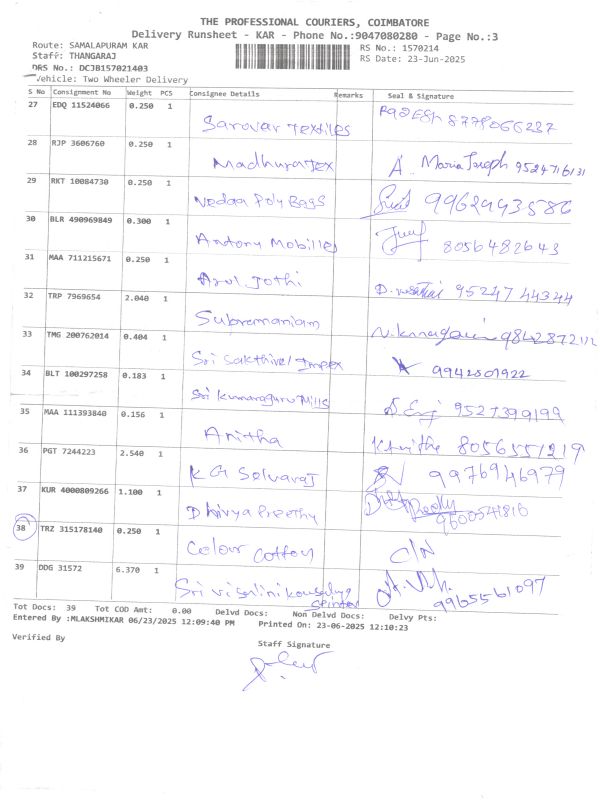 THE PROFESSIONAL COURIERS, COIMBATORE
Delivery Runsheet - KAR - Phone No.:9047080280 - Page No.:3
Route: SAMALAPURAM KAR
RS No.: 1570214
Staff: THANGARAJ
RS Date: 23-Jun-2025
DRS No.: DCJB157021403
Vehicle: Two Wheeler Delivery
S No Consignment No Weight PCS Consignee Details Remarks Seal & Signature
27 EDQ 11524066 0.250 1
Sarovar Textiles 8778066237
28 RJP 3606760 0.250 1
Madhura Tex A. Maria Joseph 9524716131
29 RKT 10084730 0.250 1
Nedaa Poly Bags 9962993586
30 BLR 490969849 0.300 1
Antony Mobilles 8056482643
31 MAA 711215671 0.250 1
Arul Jothi 9524744344
32 TRP 7969654 2.040 1
Subremaniam
33 TMG 200762014 0.404 1
Sri Sakthivel Impex 9942501922
34 BLT 100297258 0.183 1
Sri Kumaraguru Mills 9527399199
35 MAA 111393840 0.156 1
Anitha 8056551219
36 PGT 7244223 2.540 1
K G Selvaraj 9976946979
37 KUR 4000809266 1.100 1
Dhivya Preethy 9600541816
38 TRZ 315178140 0.250 1
Colour Cotton C/N
39 DDG 31572 6.370 1
Sri 9965561097
Tot Docs: 39 Tot COD Amt: 0.00 Delvd Docs: Non Delvd Docs: Delvy Pts:
Entered By :MLAKSHMIKAR 06/23/2025 12:09:40 PM Printed On: 23-06-2025 12:10:23
Verified By
Staff Signature